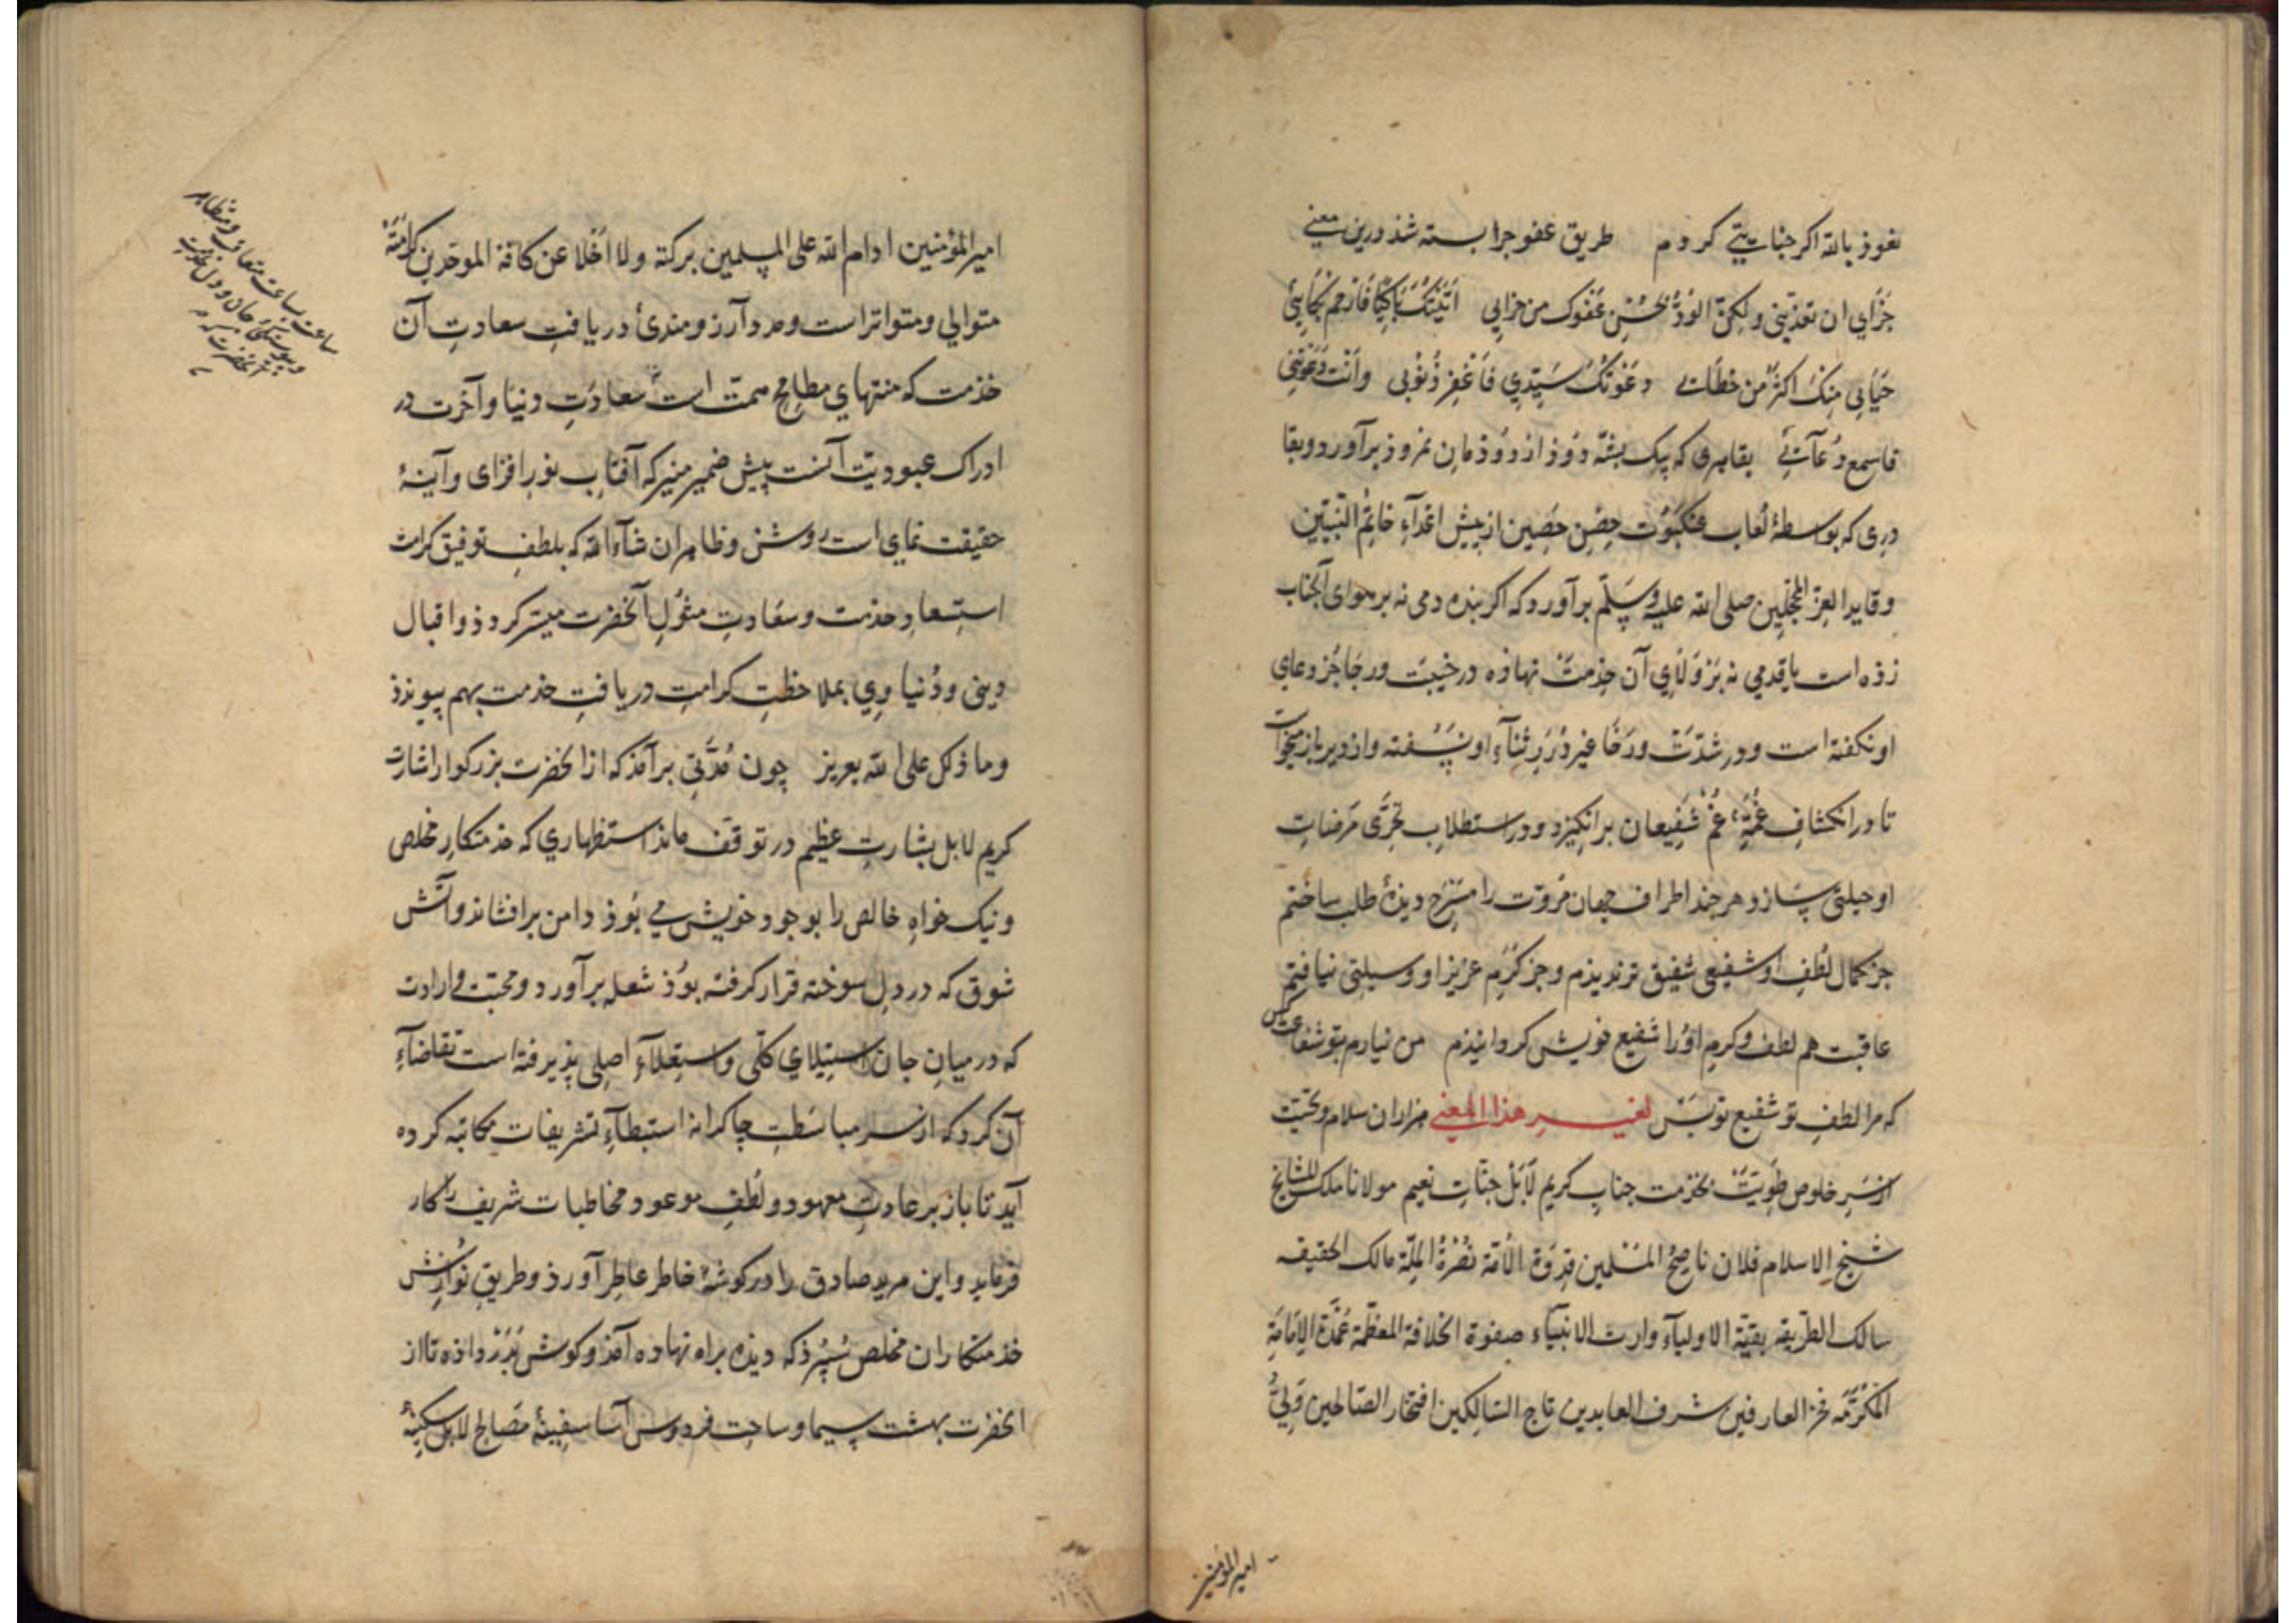 نعوذ بالله اکر جنایتی کردم طریق عفو چرا بسته شد درین معنی
جَزَای ان تعذّبنی ولکنّ الوذُ بحُسْنِ عَفوک من جزایی اَتَیْتُکَ بَاکیًا فَارحم بُکَائِی
حَیَایی مِنکَ اکثرُ من خطائی دعَوْتُکَ سَیِّدِی فَاغفِر ذُنوُبی واَنْتَ دَعَوتنی
فاسمع دُعآئی بقاهری که بیک پشّه دُوذ از دوذمان نمروذ برآورد و بقا
دری که بواسطهٔ لُعاب عنکبُوت حِصْن حَصین از پیش اعدآءِ خاتم النّبیّین
وقاید الغرّ المحجّلین صلی الله علیه وسَلّم برآورد که اکر بنده دمی نه بر هوای آنجناب
زذه است یا قدمی نه بَر وَلَای آن خِدمتْ نهاذه در خیبت و رجَا جُز دعای
او نکفته است و در شدّتْ و رَخَا غیر دُرَرِ ثنآءِ او نسُفته و از دیر باز میخواست
تا در انکشاف غُمَّهٔ غم شفیعان برانکیزد و در استطلاب تحرّی مَرضات
او حیلتی سَازد هر چند اطراف جهان مُروّت را مَسْرح دیدهٔ طلب ساختم
جز کمال لُطفِ او شفیعی شفیق تر ندیذم و جز کَرَم عزیز او وسیلتی نیافتم
عاقبت هم لطف وکرم اوُرا شفیع خویش کردانیذم من نیارم بتو شفاعت کس
که مرا لطفِ تو شفیع تو بَسْ لغیــر هذا المعنی هزاران سلام و تحیّت
از سَرِ خلوص طَوِیَّتْ بخزمت جنابِ کریم لَابَل جنّاتِ نعیم مولانا ملک المشایخ
شیخ الاسلام فلان ناصحُ المسْلمین قدوَة الاُمّة نُصْرةُ المِلّة مالک الحقیقه
سالک الطّریقه بقیّة الاولیآء وارث الانبیآء صفوة الخلافة المعظّمة عُمْدَة الاِمَامَةِ
المکَرَّمَه فخر العارفین شرف العابدین تاج السّالکین افتخار الصّالحین وَلِیُّ
امیر المؤمنین
امیر المؤمنین ادام الله علی المسلمین برکته ولا اخلا عن کافة الموحّدین کرامَتَهُ
متوالی و متواتر است و مرد آرزومندیٔ دریافتِ سعادتِ آن
خذمت که منتهای مطامح همّت است سعادَتِ دنیا و آخرت در
ادراک عبودیّت آنست پیش ضمیر منیر که آفتاب نور افزای و آینهٔ
حقیقت نمای است روشن و ظاهر ان شآء الله که بلطفِ توفیق کرامت
استعادِ خدمت و سعَادتِ مثوُلِ آنحضرت میسّر کردذ و اقبال
دینی و دُنیاوِی بملاحظتِ کرامتِ دریافتِ خذمت بهم پیوندذ
وما ذلک علی الله بعزیز چون مُدّتی برآمذ که از انحضرت بزرکوار اشارت
کریم لا بل بشارتِ عظیم در توقّف ماند استظهاری که خذمتکارِ مخلص
و نیک خواهِ خالص را بوجود خویش می بُوذ دامن برافشاند و آتش
شوق که در دلِ سوخته قرار کرفته بوُذ شعله برآورد و محبّت و ارادت
که در میانِ جان استیلای کلّی و استعلآءِ اصلی پذیرفته است تقاضآءِ
آن کرد که از سر مباسَطتِ چاکرانه استبطآءِ تشریفات مکاتبه کرده
آید تا باز بر عادتِ معهود و لُطفِ موعود مخاطبات شریف را کار
فرماید و این مرید صادق را در کوشهٔ خاطر عاطر آورذ و طریقِ نوُازش
خذمتکاران مخلص سُپُرذ که دیذه براه نهاده آمذ و کوش بَرْ دَر داذه تا از
انحضرت بهشت سیما و ساحتِ فردوس آسا سفینهٔ مَصَالح لابل سَکینهٔ
ساعت ساعت متعاقب و متظاهر